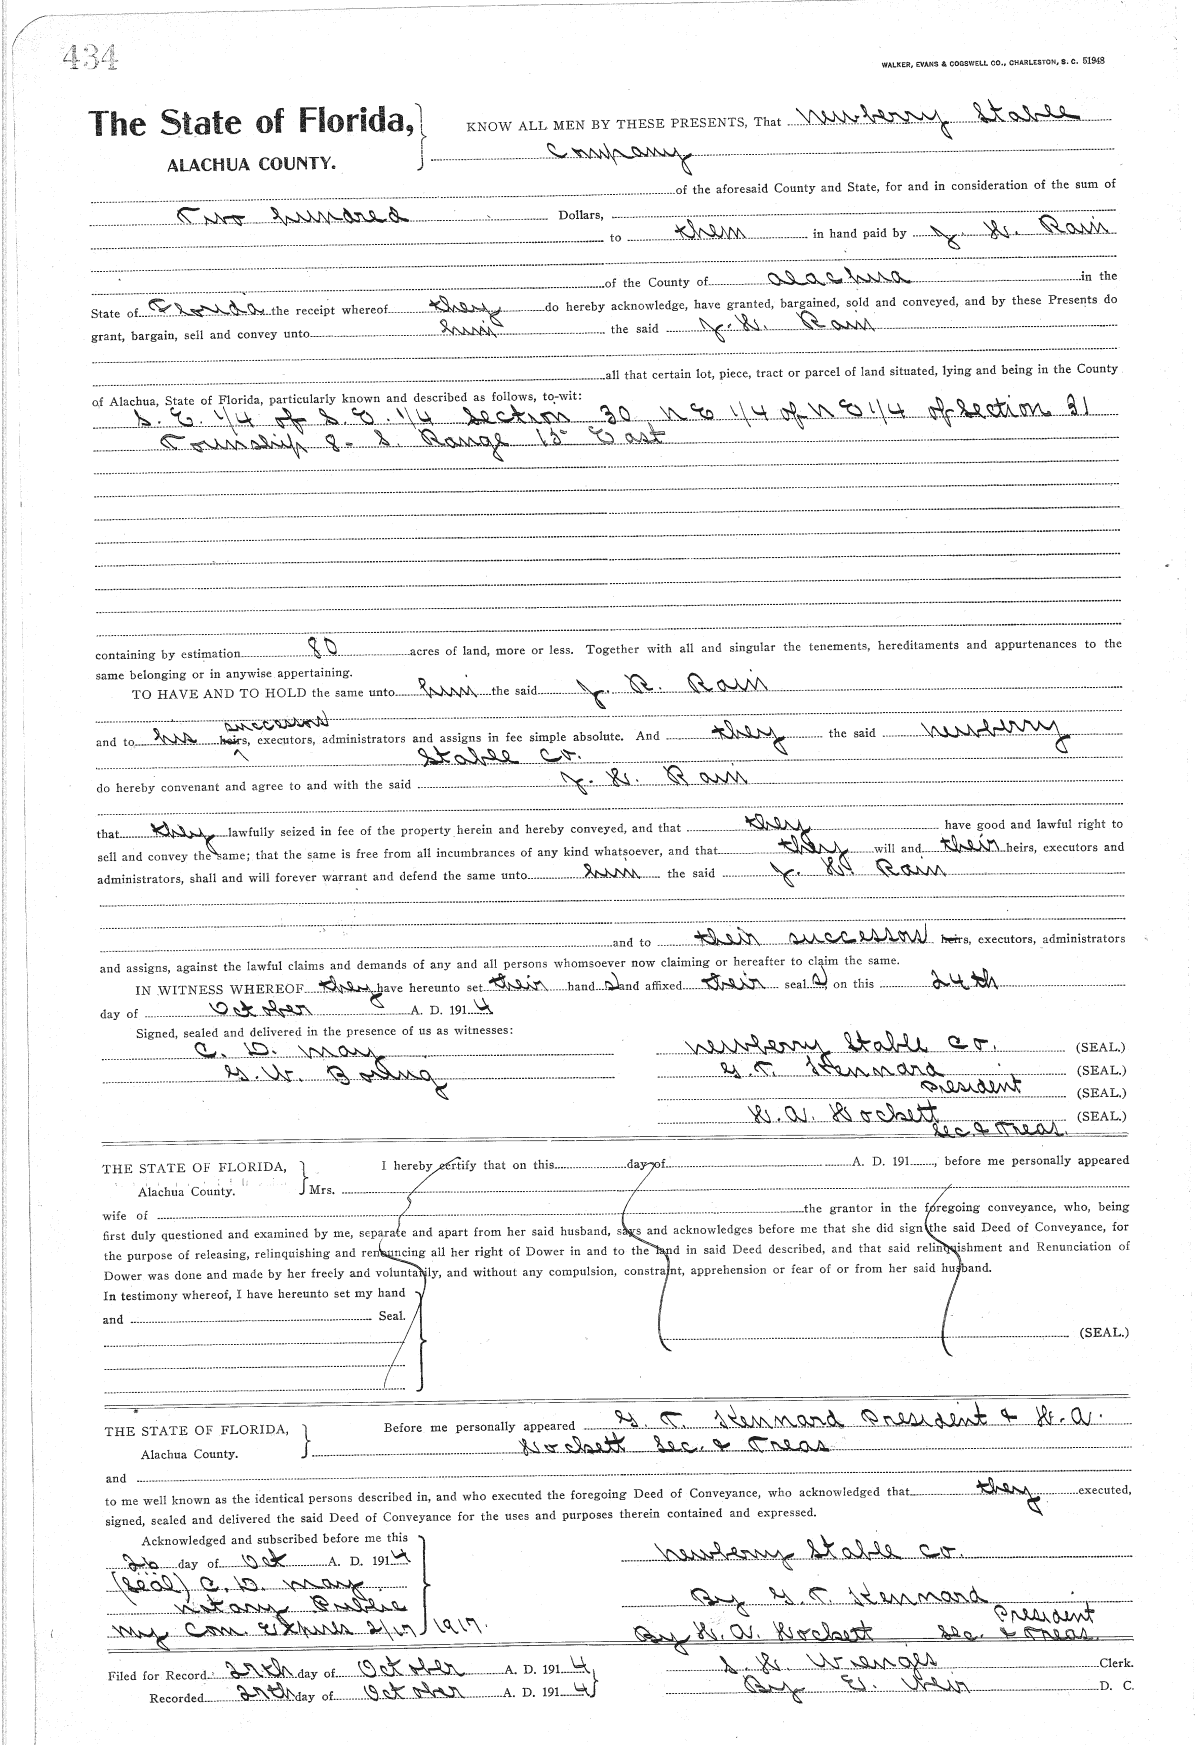 434
WALKER, EVANS & COGSWELL CO., CHARLESTON, S. C. 51948
The State of Florida, KNOW ALL MEN BY THESE PRESENTS, That Newberry Stable
ALACHUA COUNTY. Company
of the aforesaid County and State, for and in consideration of the sum of
Two hundred Dollars,
to them in hand paid by J. H. Rain
of the County of Alachua in the
State of Florida the receipt whereof they do hereby acknowledge, have granted, bargained, sold and conveyed, and by these Presents do
grant, bargain, sell and convey unto him the said J. H. Rain
all that certain lot, piece, tract or parcel of land situated, lying and being in the County
of Alachua, State of Florida, particularly known and described as follows, to-wit:
S. E. 1/4 of S. E. 1/4 Section 30 N E 1/4 of N E 1/4 of Section 31
Township 8- S. Range 15 East
containing by estimation 80 acres of land, more or less. Together with all and singular the tenements, hereditaments and appurtenances to the
same belonging or in anywise appertaining.
TO HAVE AND TO HOLD the same unto him the said J. R. Rain
successors
and to his heirs, executors, administrators and assigns in fee simple absolute. And they the said Newberry
Stable Co.
do hereby convenant and agree to and with the said J. H. Rain
that they lawfully seized in fee of the property herein and hereby conveyed, and that they have good and lawful right to
sell and convey the same; that the same is free from all incumbrances of any kind whatsoever, and that they will and their heirs, executors and
administrators, shall and will forever warrant and defend the same unto him the said J. H. Rain
and to their successors heirs, executors, administrators
and assigns, against the lawful claims and demands of any and all persons whomsoever now claiming or hereafter to claim the same.
IN WITNESS WHEREOF they have hereunto set their hand s and affixed their seal s on this 24th
day of October A. D. 1914
Signed, sealed and delivered in the presence of us as witnesses:
C. D. May Newberry Stable Co. (SEAL.)
G. W. Boring G. T. Kennard (SEAL.)
President (SEAL.)
H. A. Hockett (SEAL.)
Sec. & Treas.
THE STATE OF FLORIDA, I hereby certify that on this day of A. D. 191 , before me personally appeared
Alachua County. Mrs.
wife of the grantor in the foregoing conveyance, who, being
first duly questioned and examined by me, separate and apart from her said husband, says and acknowledges before me that she did sign the said Deed of Conveyance, for
the purpose of releasing, relinquishing and renouncing all her right of Dower in and to the land in said Deed described, and that said relinquishment and Renunciation of
Dower was done and made by her freely and voluntarily, and without any compulsion, constraint, apprehension or fear of or from her said husband.
In testimony whereof, I have hereunto set my hand
and Seal.
(SEAL.)
THE STATE OF FLORIDA, Before me personally appeared G. T. Kennard President & H. A.
Alachua County. Hockett Sec. & Treas
and
to me well known as the identical persons described in, and who executed the foregoing Deed of Conveyance, who acknowledged that they executed,
signed, sealed and delivered the said Deed of Conveyance for the uses and purposes therein contained and expressed.
Acknowledged and subscribed before me this
26 day of Oct A. D. 1914 Newberry Stable Co.
(Seal) C. D. May
Notary Public By G. T. Kennard
President
My Com. Expires 2/17/1917. By H. A. Hockett Sec. & Treas.
Filed for Record 27th day of October A. D. 1914 S. H. Wienges Clerk.
Recorded 27th day of October A. D. 1914 By E. Weir D. C.